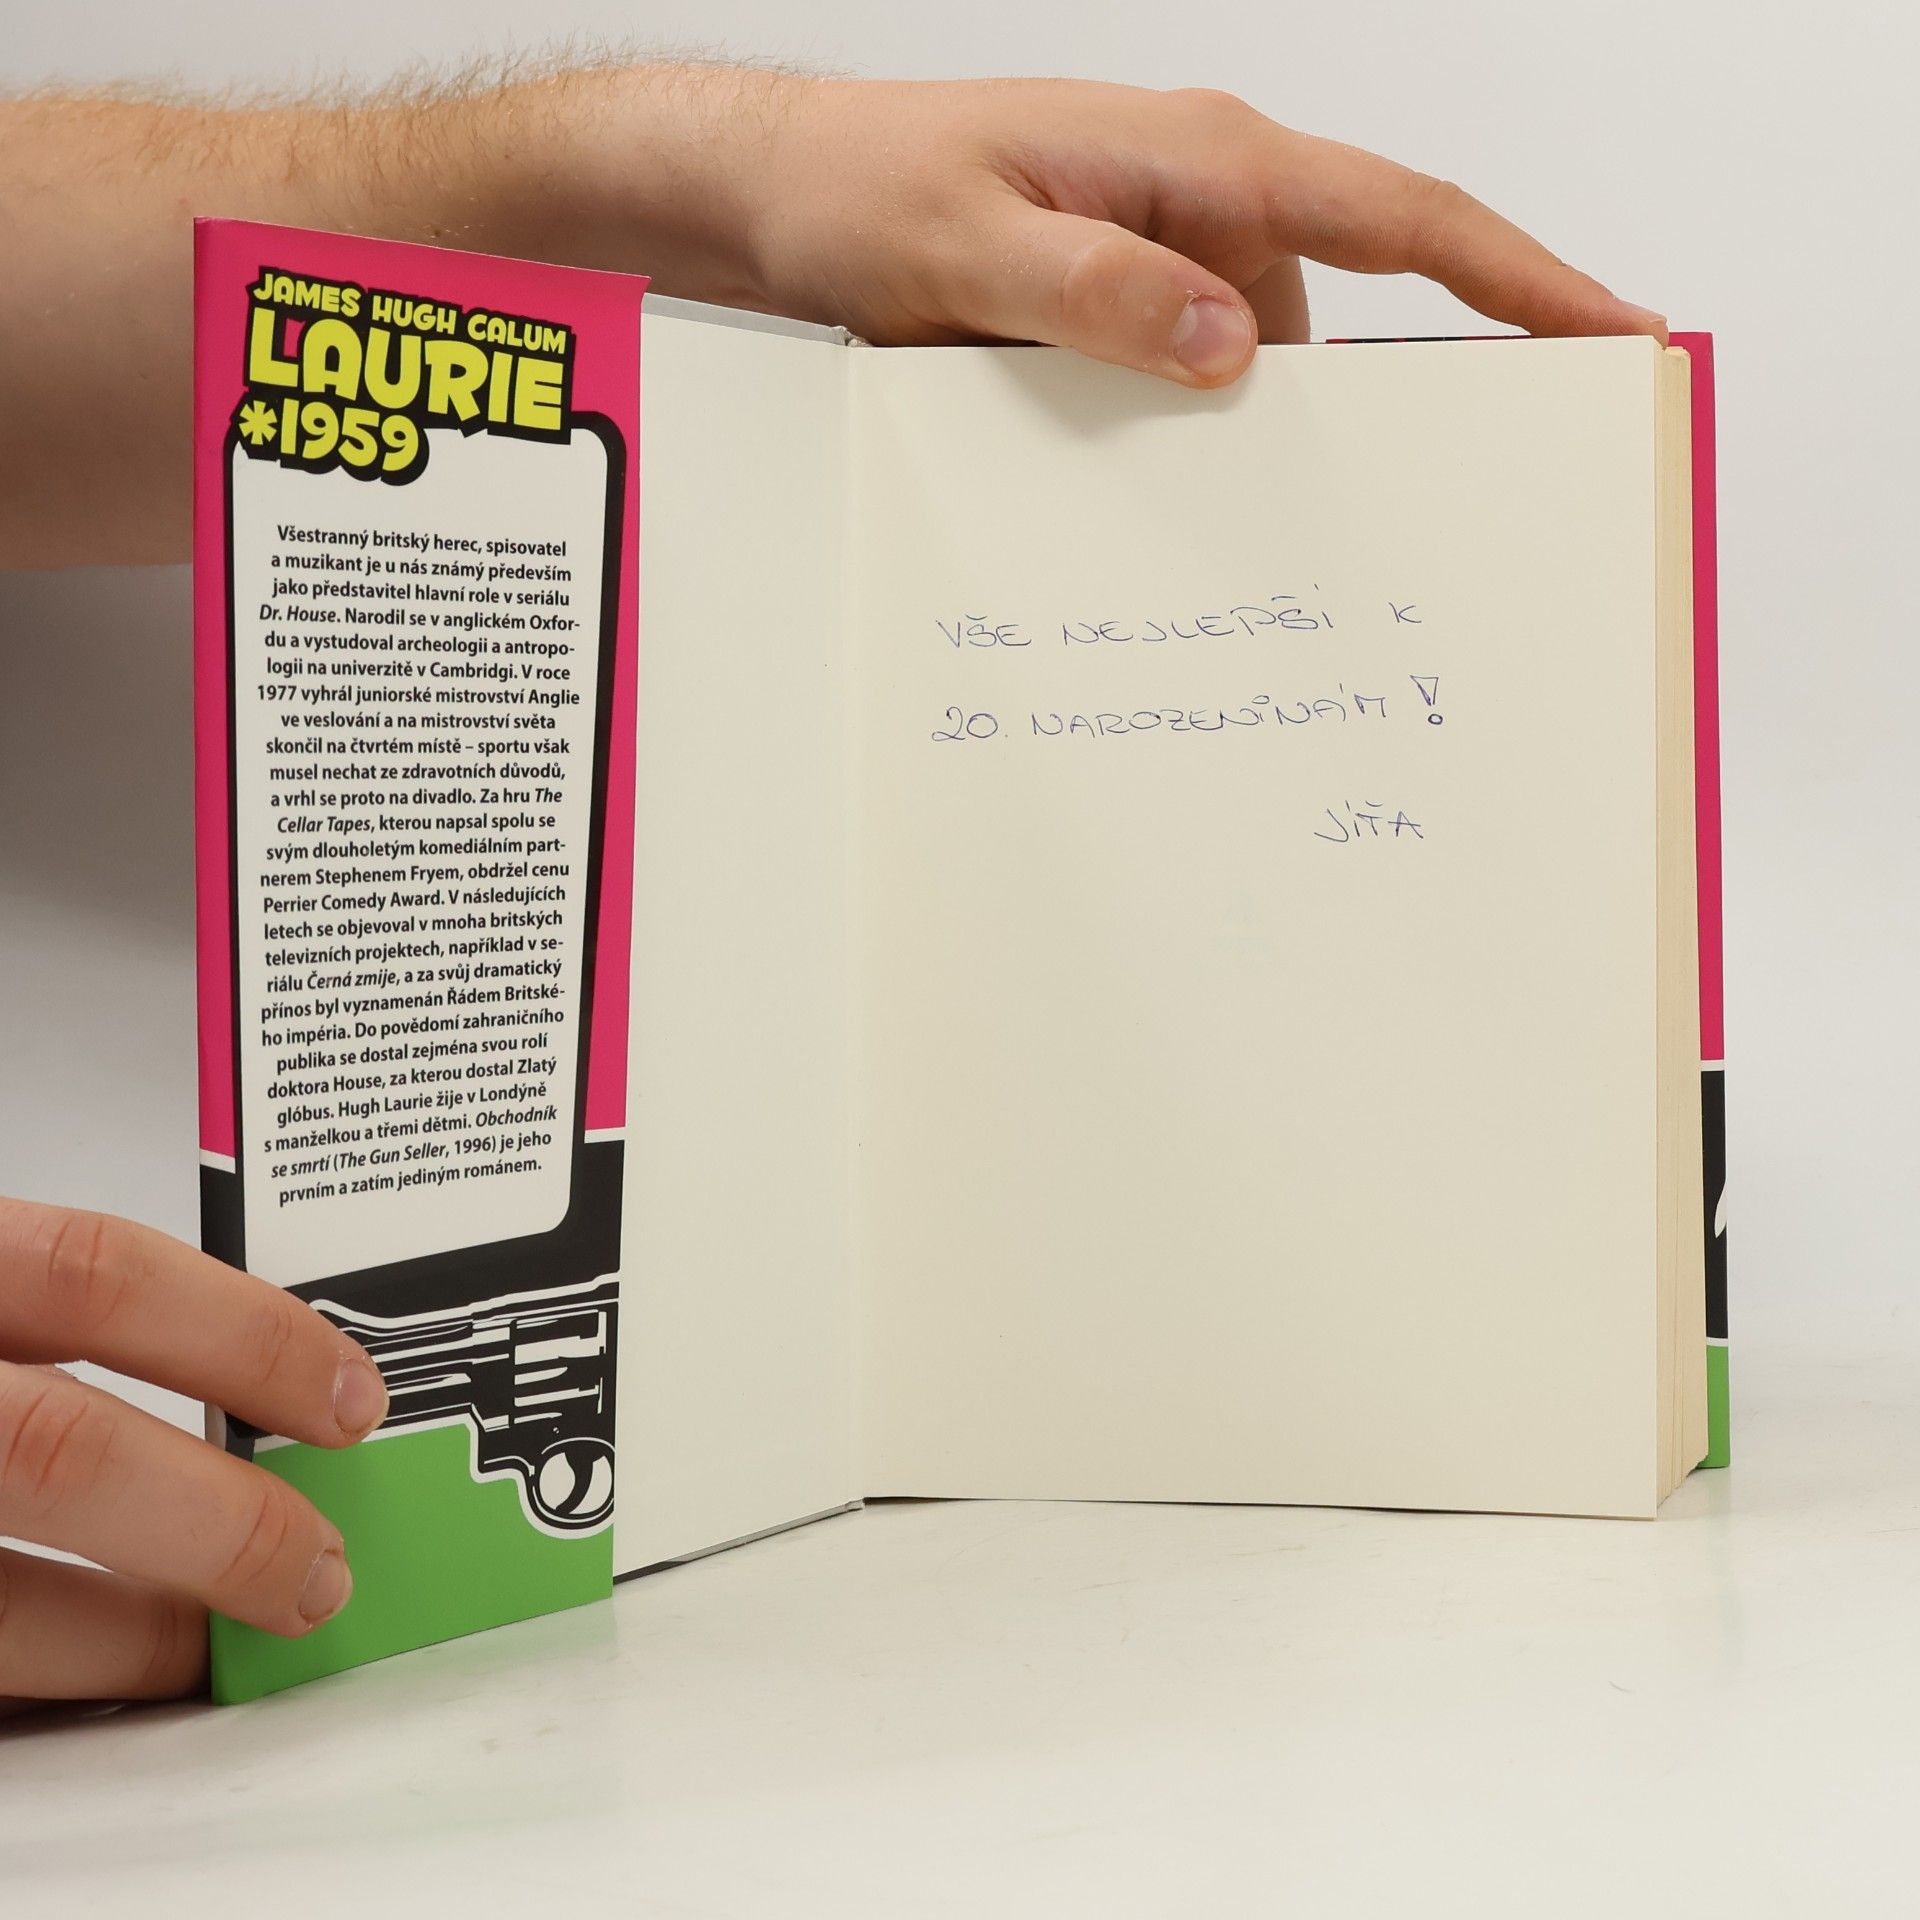 JAMES HUGH CALUM
LAURIE
*1959
Všestranný britský herec, spisovatel
a muzikant je u nás známý především
jako představitel hlavní role v seriálu
Dr. House. Narodil se v anglickém Oxfor-
du a vystudoval archeologii a antropo-
logii na univerzitě v Cambridgi. V roce
1977 vyhrál juniorské mistrovství Anglie
ve veslování a na mistrovství světa
skončil na čtvrtém místě – sportu však
musel nechat ze zdravotních důvodů,
a vrhl se proto na divadlo. Za hru The
Cellar Tapes, kterou napsal spolu se
svým dlouholetým komediálním part-
nerem Stephenem Fryem, obdržel cenu
Perrier Comedy Award. V následujících
letech se objevoval v mnoha britských
televizních projektech, například v se-
riálu Černá zmije, a za svůj dramatický
přínos byl vyznamenán Řádem Britské-
ho impéria. Do povědomí zahraničního
publika se dostal zejména svou rolí
doktora House, za kterou dostal Zlatý
glóbus. Hugh Laurie žije v Londýně
s manželkou a třemi dětmi. Obchodník
se smrtí (The Gun Seller, 1996) je jeho
prvním a zatím jediným románem.
VŠE NEJLEPŠÍ K
20. NAROZENINÁM!
JÍŤA